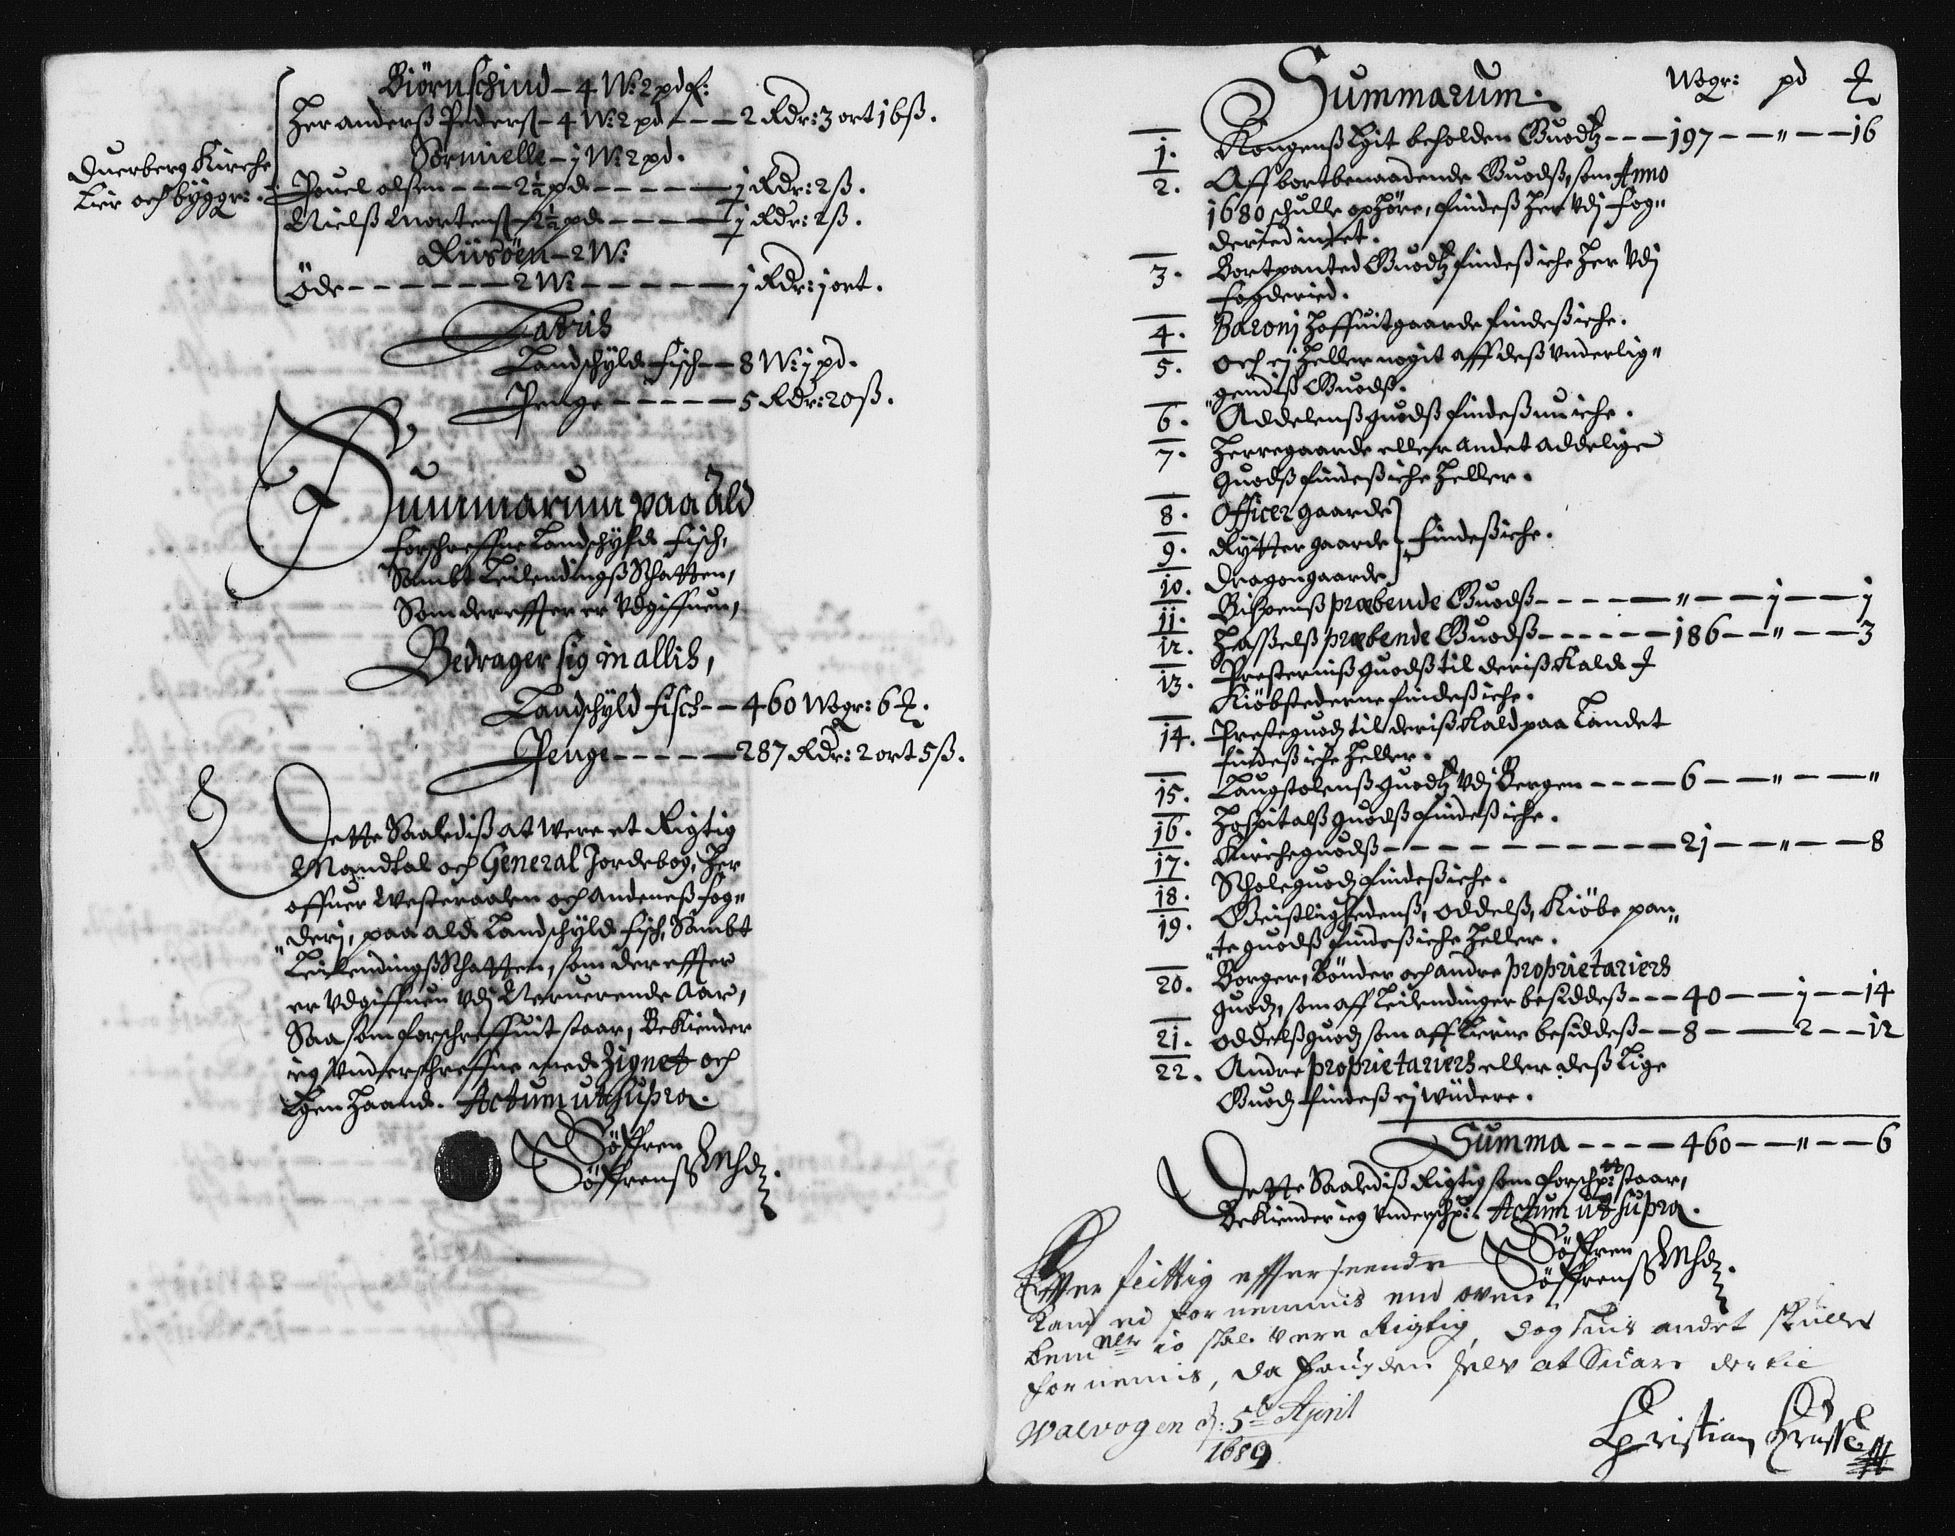 Biörnschind – 4 W: 2 pd f:
Her anderß Pederß – 4 W: 2 pd – – – 2 Rdr: 3 ort 16 ß.
Sormielle – j W: 2 pd.
Duerberg Kirche
Leie och bygger:
Pouel olsen – – – 2½ pd – – – – – j Rdr: 2 ß.
Nielß Mortenß – 2½ pd – – – – – j Rdr: 2 ß.
Riisöen – 2 W:
Öde – – – – – – – 2 W: – – – – – j Rdr: j ort.
Lateris
Landschyld fisch – – 8 W: j pd.
Penge – – – – – 5 Rdr: 20 ß.
Summarum paa Ald
forschreffne Landschylds fisch,
Sambt Leilendingß Schatten,
Som der effter er Udgiffuen,
Bedrager sig in allis,
Landschyld fisch – – 460 Wogr: 6 ℔.
Penge – – – – – 287 Rdr: 2 ort 5 ß.
Dette Saaledis at were et Rigtig
Mandtal och General Jordebog, Her
offuer Westeraalen och Andeneß fog„
„derj, paa ald Landschylds fisch, Sambt
Leilendingß Schatten, som der effter
er Udgiffuen Udj Neruerende Aar,
Saa som forschreffuit staar, Bekiender
ieg Underschreffne med Zignet och
Egen Haand. Actum ut Supra.
Söffren
Söffrenß
Summarum. Wogr: pd ℔
1. Kongenß Egit beholden Guodtz – – – 197 – – „ – – 16
2. Aff bortbenaadende Guodß, som Anno
1680 schulle ophöre, findeß her Udj fog„
deried intet.
3. Bortpanted Guodtz findeß iche Her Udj
fogderied.
4. Baronj Hoffuitgaarde findeß iche.
5. och ej Heller nogit aff deß Underlig„
„gendiß Guodß.
6. Addelenß guodß findeß nu iche.
7. Herregaarde eller andet addelige
guodß findeß iche Heller.
8. Officer gaarde
9. Rytter gaarde findeß iche.
10. Dragongaarde
11. Bispenß præbende Guodß – – – – – „ – – j – – j
12. Haßelß præbende Guodß – – – – – 186 – – „ – – 3
13. Presterniß guodß til deriß Kald I
Kiöbstederne findeß iche.
14. Presteguodz til deriß Kald paa Landet
findeß iche Heller.
15. Laugstolenß guodtz Udj Bergen – – – – 6 – – „ – – „
16. Hospitalß guodß findeß iche.
17. Kircheguodß – – – – – – – – – – 21 – – „ – – 8
18. Scholeguodz findeß iche.
19. Geistlighedenß, oddelß, Kiöbe pan„
„te guodß findeß iche Heller.
20. Borger, Bönder och andre proprietariers
guodz, som aff Leilendinger besiddeß – – – 40 – – j – – 14
21. Oddelßguodz som aff Eierne besiddeß – – 8 – – 2 – – 12
22. Andre proprietariers eller deß Lige
Guodz findeß ej Widere.
Summa – – – – 460 – – „ – – 6
Dette Saaledis Rigtig som forschr: staar,
Bekiender ieg Underschr: Actum ut Supra.
Söffren
Söffrenß
Effter flittig efferseende
Kand ei fornemmis end oven
bemelte jo skal were Rigtig, dog huis andet skulle
fornemis, da fougden selv at Suare dertil
Walvogen d: 5te April
1689
Christian Krusse